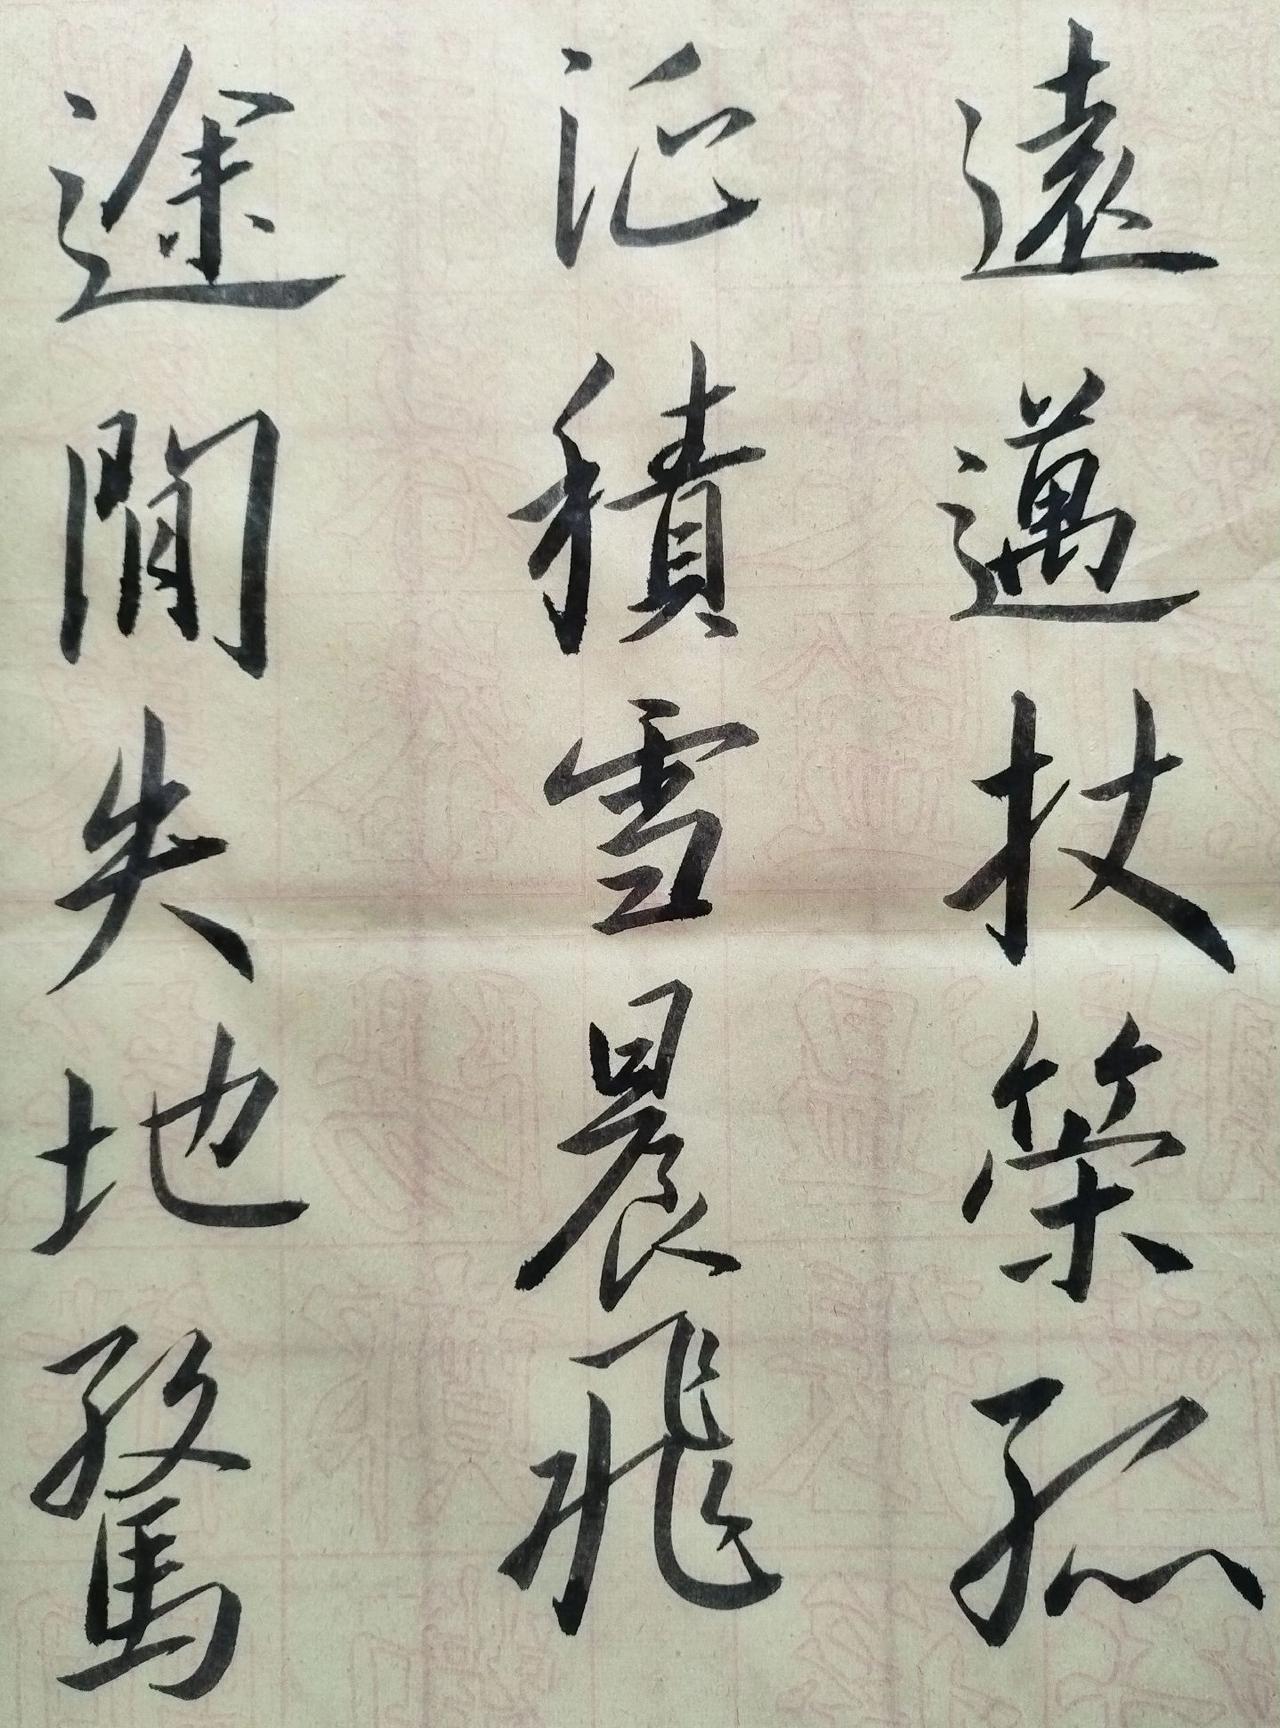 遠邁杖策孤
征積雪晨飛
途閒失地驚